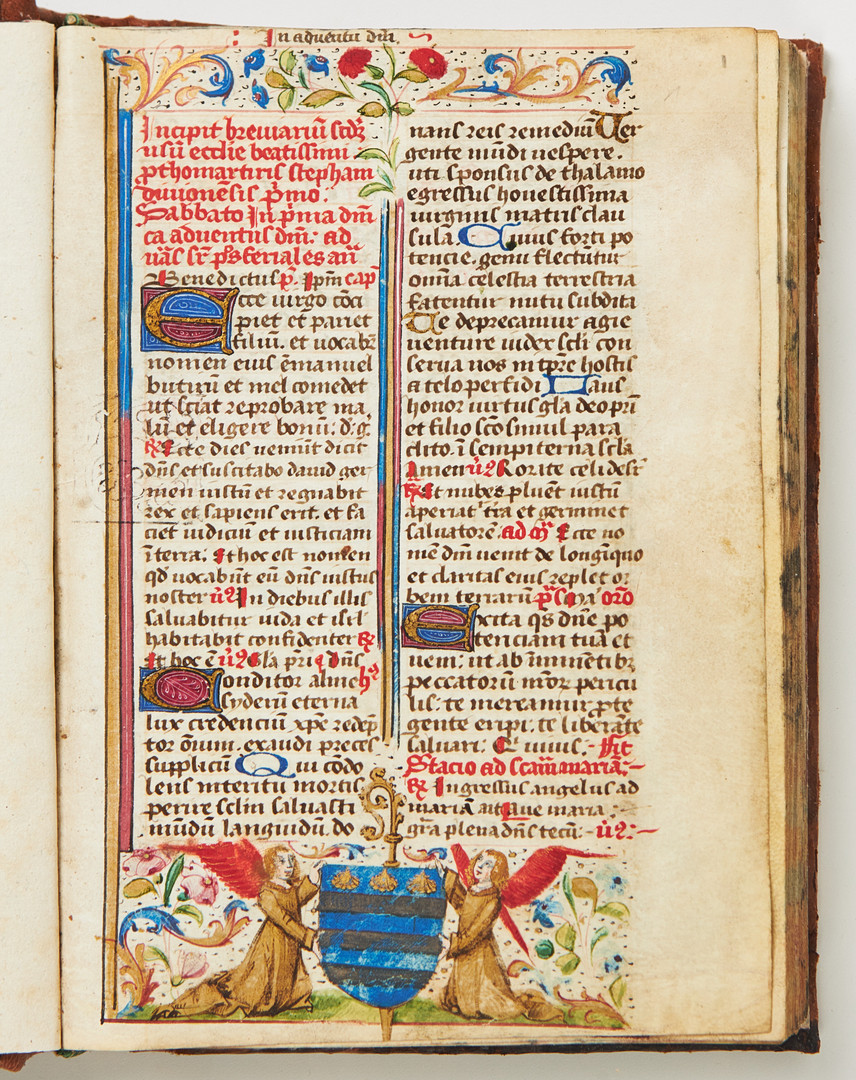 In adventu dm̄.
Incipit breviariū scdȝ
usū ecclie beatissimi
p̱thomartiris stephani
divionēsis p̄mo.
Sabbato In p̄ma dm̄i
ca adventus dm̄: ad
vās sr̄ p̄s feriales añ
Benedictus. p̄. Ip̄m cap̄
Ecce virgo cōci
piet et pariet
filiū. et vocabr̄
nomen eius ēmanuel
butirū et mel comedet
ut sciat reprobare ma
lū et eligere bonū. d. g̅.
℟ Ecce dies veniūt dicit
dn̄s et suscitabo david ger
men iustū et regnabit
rex et sapiens erit. et fa
ciet iudiciū et iusticiam
ī terra. Et hoc est nomen
qd̄ vocabūt eū dn̄s iustus
noster ūs In diebus illis
salvabitur iuda et isrl̄
habitabit confidenter ℟
Et hoc ē ūs Gl̄a pr̄i q̄ dn̄s
Conditor alme hȳs
syderū eterna
lux credenciū xp̄e redēp
tor om̄ium. exaudi preces
supplicū Qui cōdo
lens interitu mortis
perire sclm̄ salvasti
mūdū languidū. do
nans reis remediū Ver
gente mūdi vespere.
uti sponsus de thalamo
egressus honestissima
virginis matris clau
sula. Cuius forti po
tencie. genu flectūtur
omīa celestia terrestria
fatentur nutu subdita
Te deprecamur agie
venture iudex scl̄i con
serva nos in tp̄re hostis
a telo perfidi Laus
honor virtus gl̄a deo pr̄i
et filio sc̄o simul para
clito. ī sempiterna scl̄a
Amen ūs Rorate celi desr̄
℟ Et nubes pluēt iustū
aperiatʳ tr̄a et germinet
salvatorē. ad m̄ Ecce no
mē dn̄i venit de longīquo
et claritas eius replet or
bem terrarū p̄s Mā oro̅
Excita qs̄ dn̄e po
tenciam tuā et
veni: ut ab īminētibȝ
peccatorū nr̄orȝ pericu
lis. te mereamur p̱te
gente eripi. te liberāte
salvari. Q̄ vivis. Fit
Stacio ad scāmariā.
℟ Ingressus angelus ad
mariā ait Ave maria
gr̄a plena dn̄s tecū. ūs.